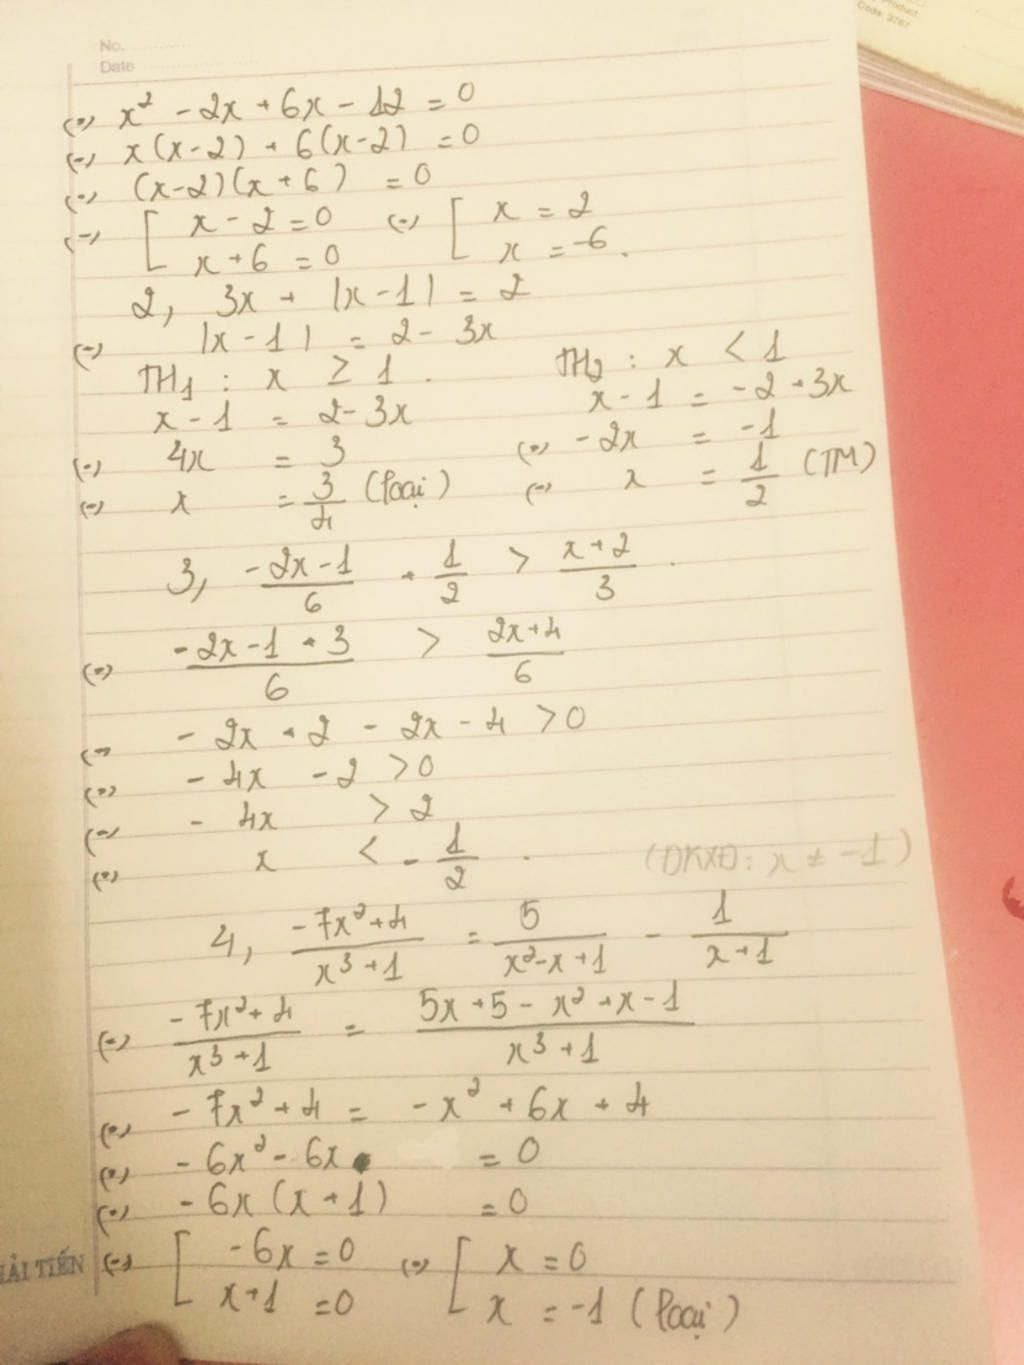 Product
Code: 3767
No.
Date
(=) x² - 2x + 6x - 12 = 0
(=) x(x-2) + 6(x-2) = 0
(=) (x-2)(x+6) = 0
(=) [ x - 2 = 0 (=) [ x = 2
x + 6 = 0 x = -6.
2, 3x + |x-1| = 2
(=) |x-1| = 2 - 3x
TH1 : x ≥ 1. TH2 : x < 1
x - 1 = 2 - 3x x - 1 = -2 + 3x
(=) 4x = 3 (=) -2x = -1
(=) x = 3/4 (loại) (=) x = 1/2 (TM)
3, (-2x-1)/6 + 1/2 > (x+2)/3.
(=) (-2x-1+3)/6 > (2x+4)/6
(=) -2x + 2 - 2x - 4 > 0
(=) -4x - 2 > 0
(=) -4x > 2
(=) x < -1/2.
(ĐKXĐ: x ≠ -1)
4, (-7x²+4)/(x³+1) = 5/(x²-x+1) - 1/(x+1)
(=) (-7x²+4)/(x³+1) = (5x+5-x²+x-1)/(x³+1)
(=) -7x² + 4 = -x² + 6x + 4
(=) -6x² - 6x = 0
(=) -6x(x+1) = 0
(=) [ -6x = 0 (=) [ x = 0
x+1 = 0 x = -1 (loại)
HẢI TIẾN